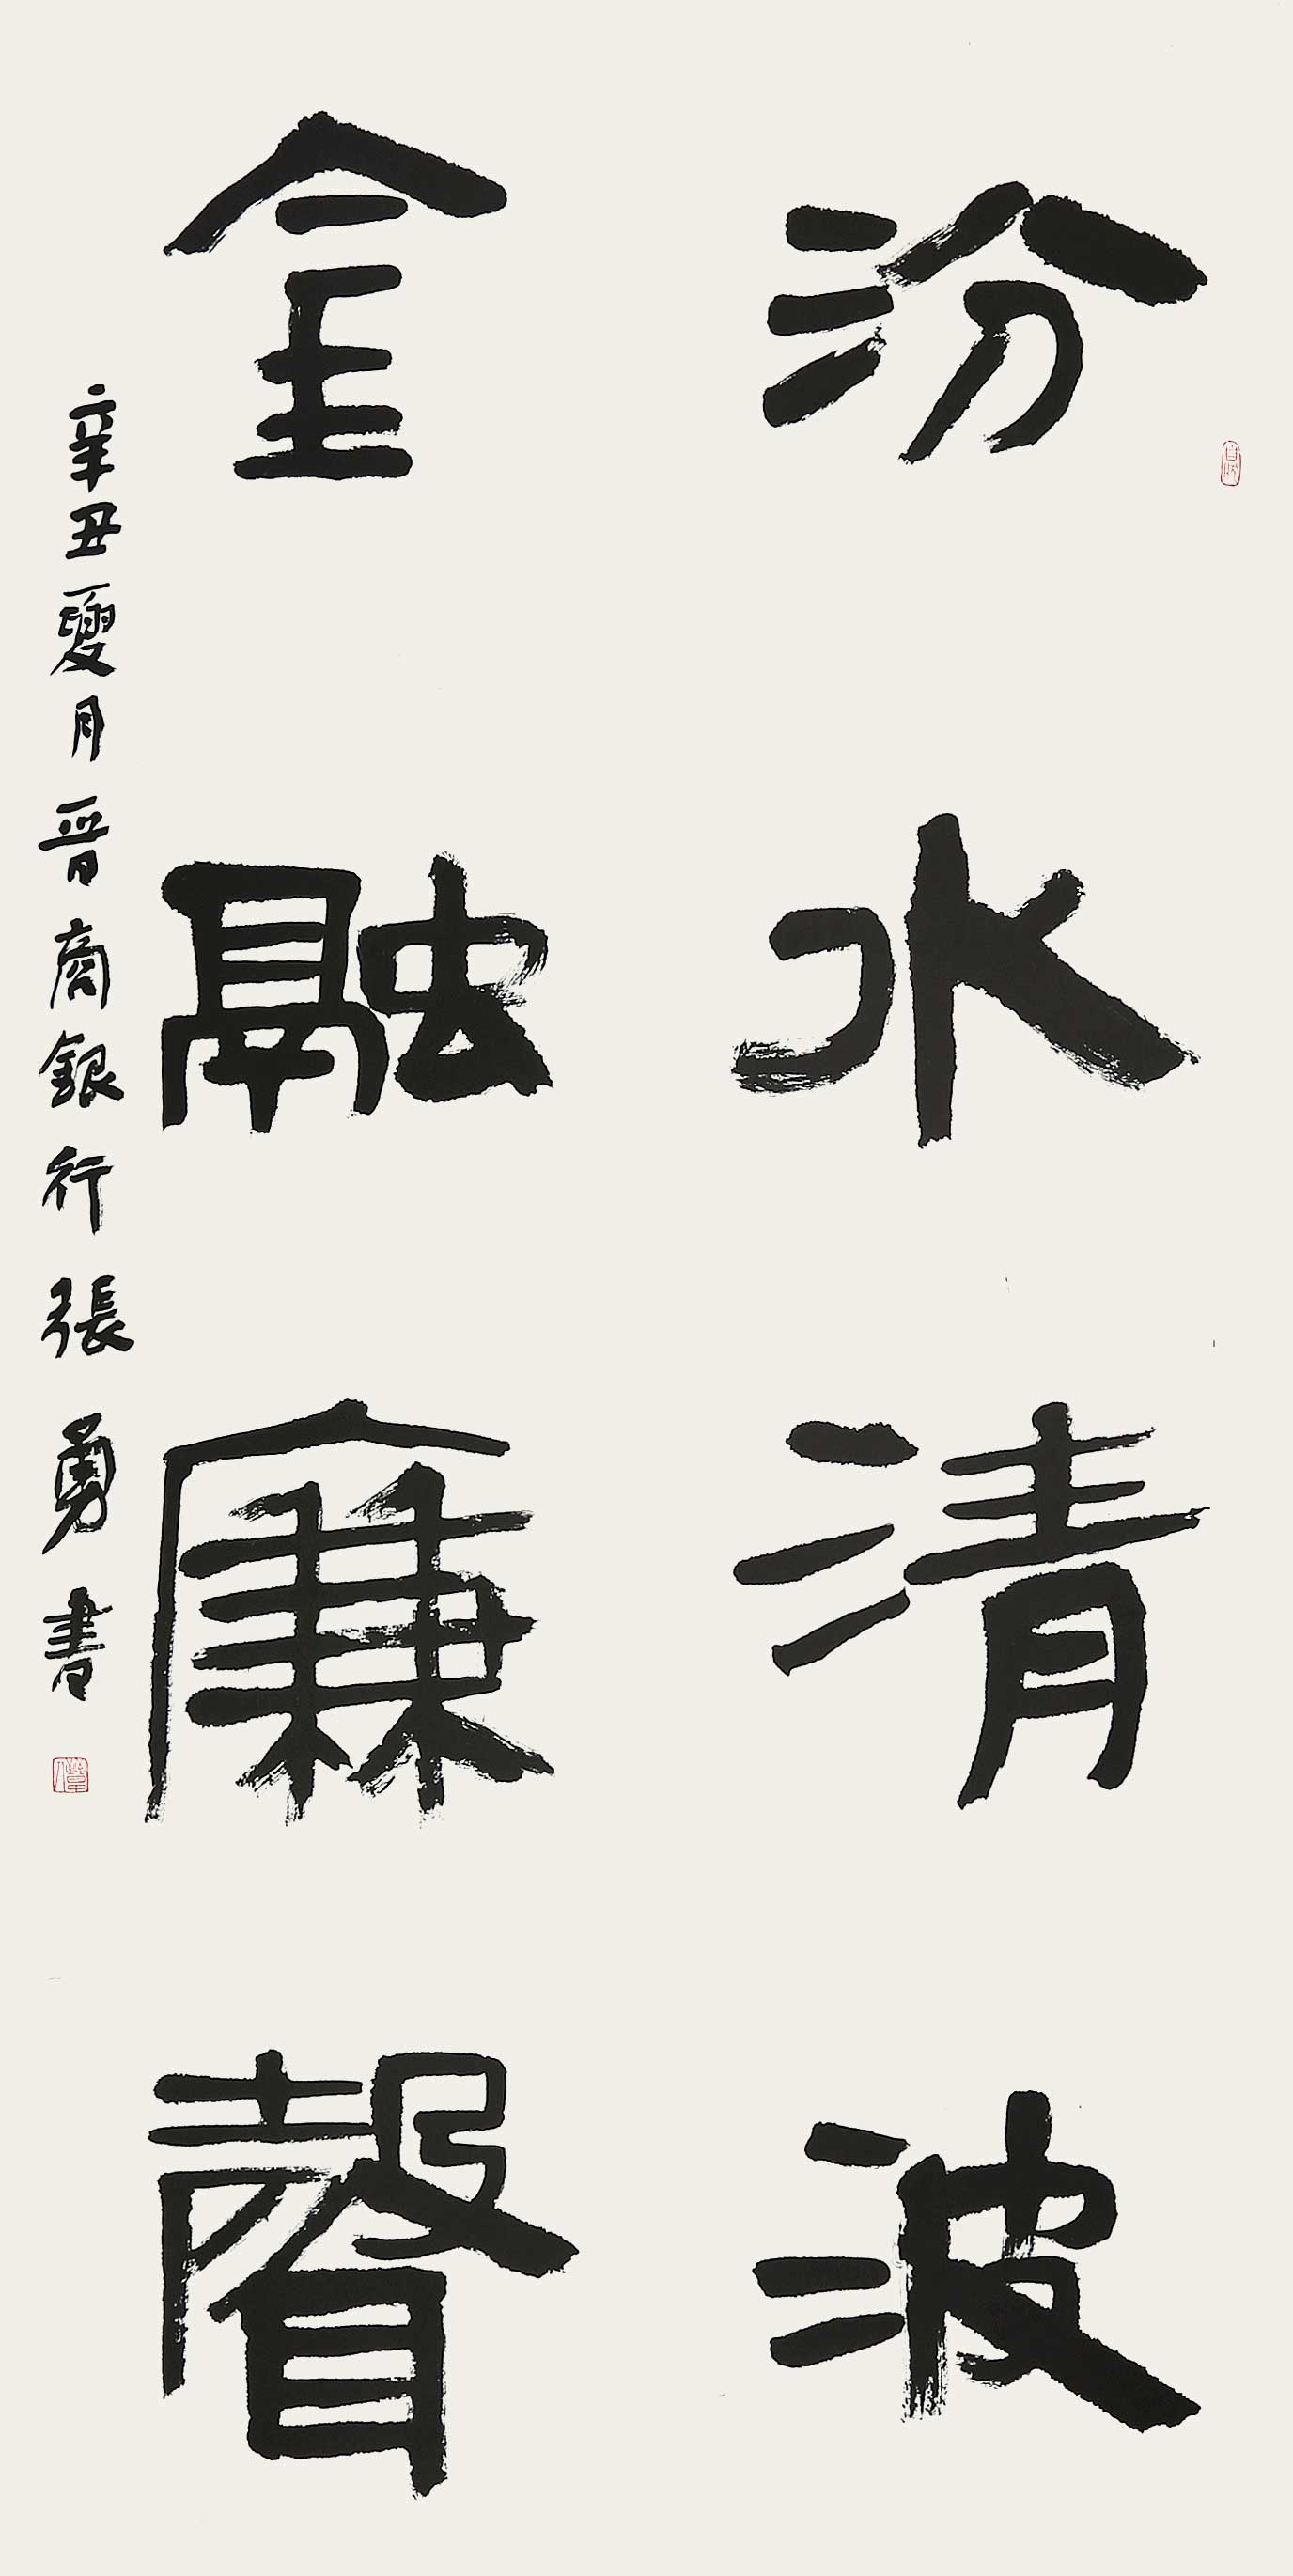 汾水清波
金融廉聲
辛丑夏月晋商銀行張勇書